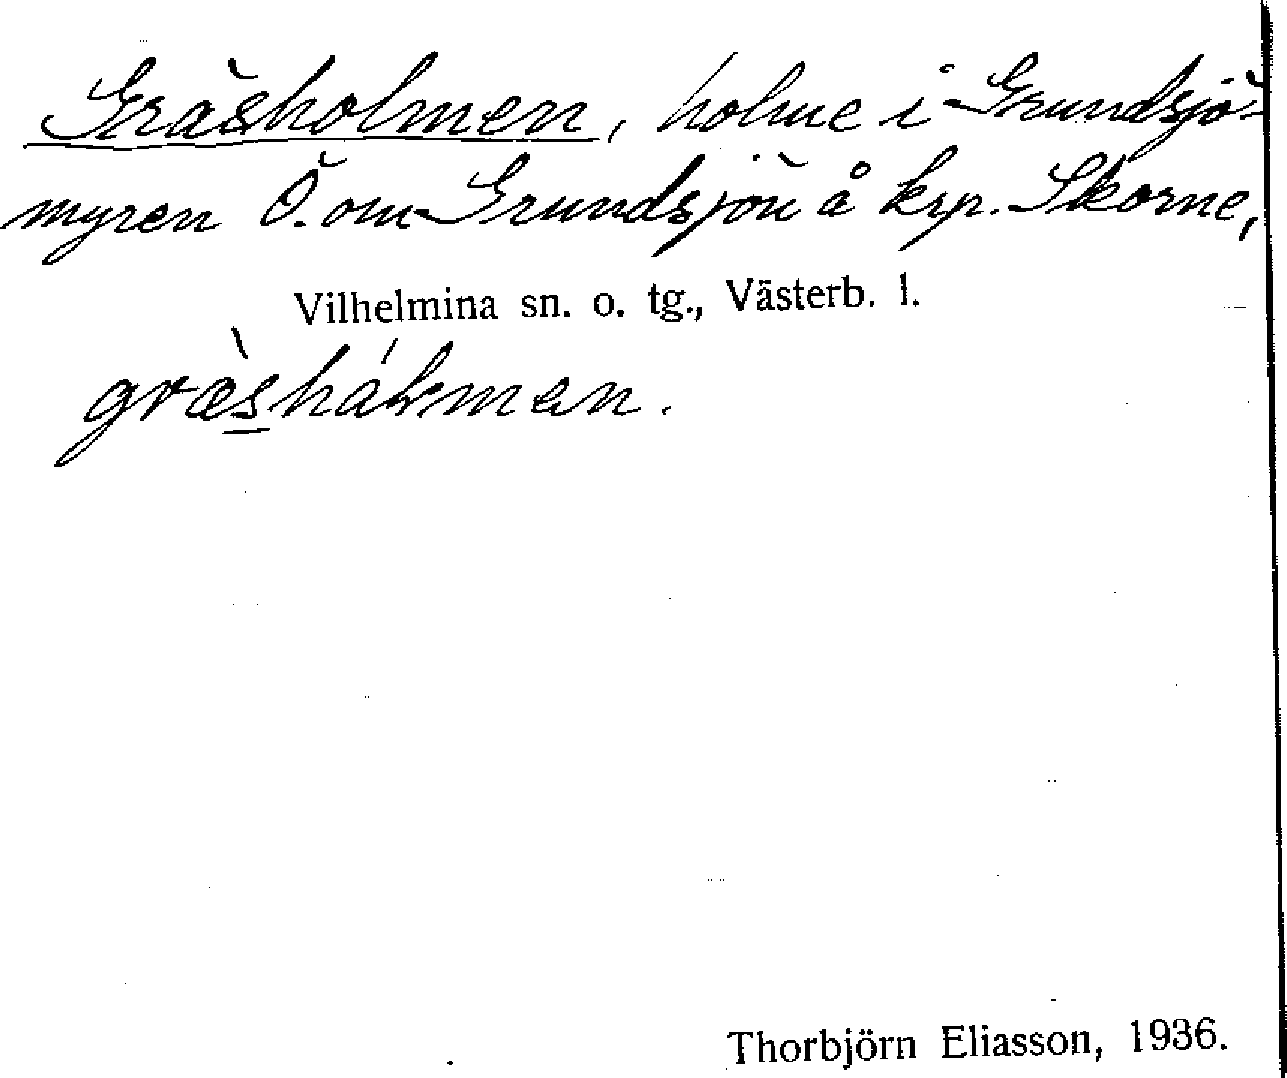 Gräsholmen, holme i Grundsjö-
myren Ö. om Grundsjön å krp. Skorne,
Vilhelmina sn. o. tg., Västerb. l.
græ̀shálman.
Thorbjörn Eliasson, 1936.